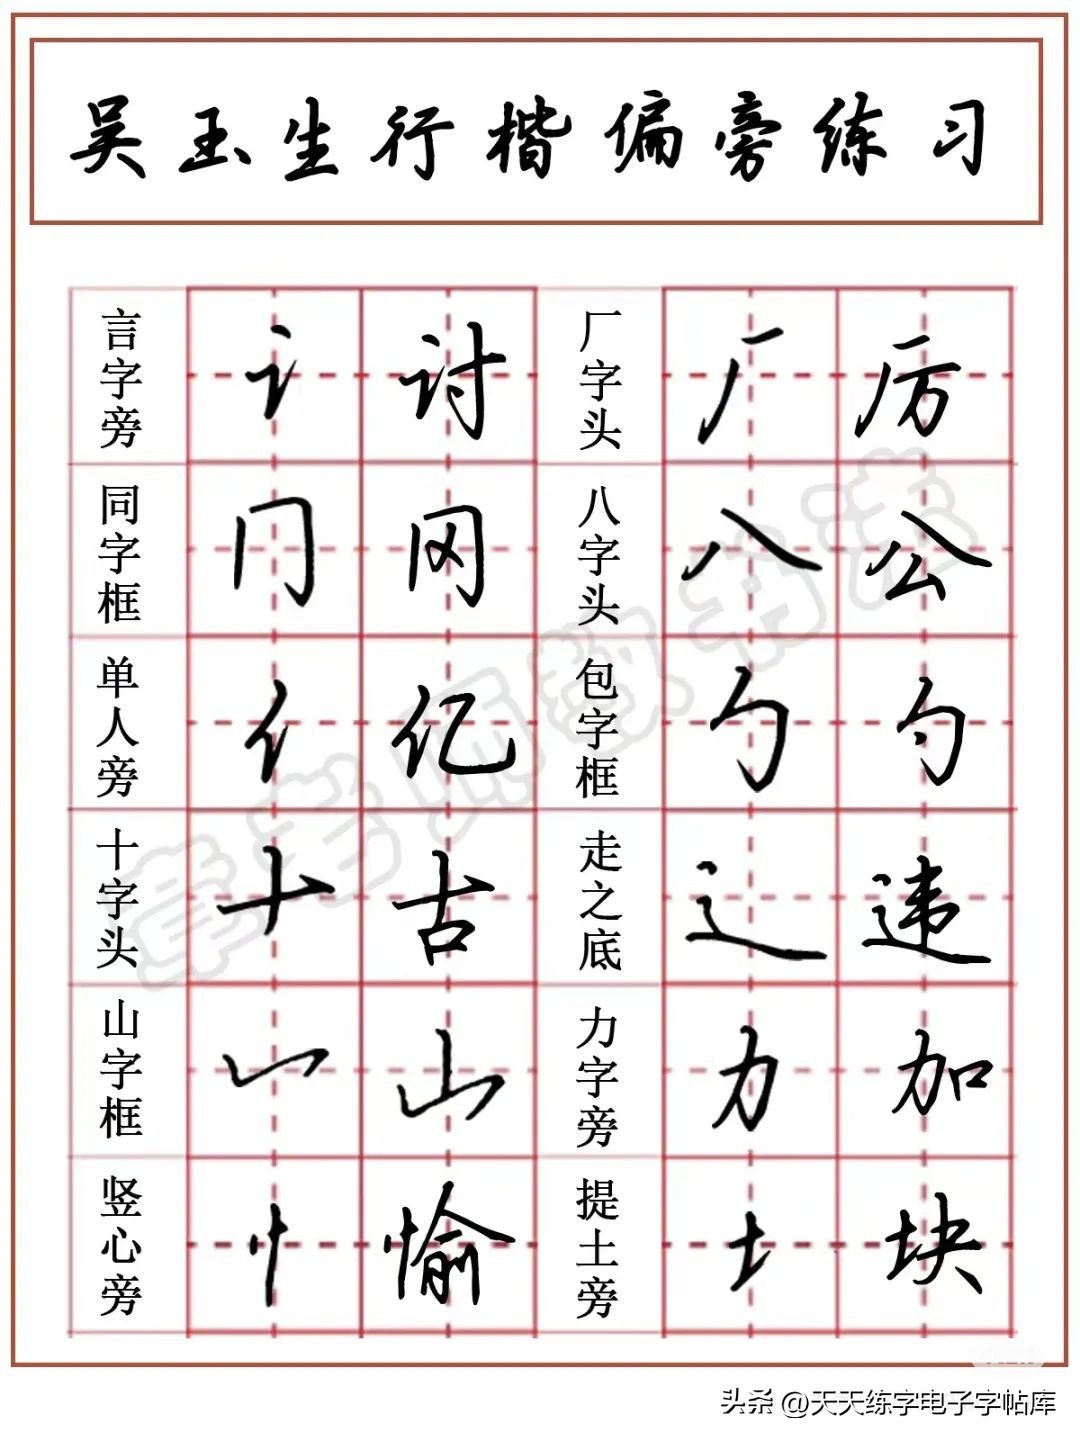 吴玉生行楷偏旁练习
言字旁 讠 讨 厂字头 厂 厉
同字框 冂 冈 八字头 八 公
单人旁 亻 亿 包字框 勹 勺
十字头 十 古 走之底 辶 违
山字框 凵 山 力字旁 力 加
竖心旁 忄 愉 提土旁 土 块
章老师教书法
头条 @天天练字电子字帖库